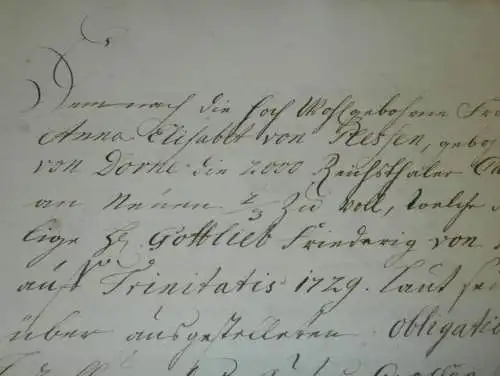 Demnach die Hoch Wohlgebohrne Fra
Anna Elisabet von Plessen, geboh
von Dorne die 2000 Reichsthaler
an Neuen 2/3 zu voll, welche
lige H. Gottlieb Friederig von
auf Trinitatis 1729. laut
über ausgestelleten obligatio